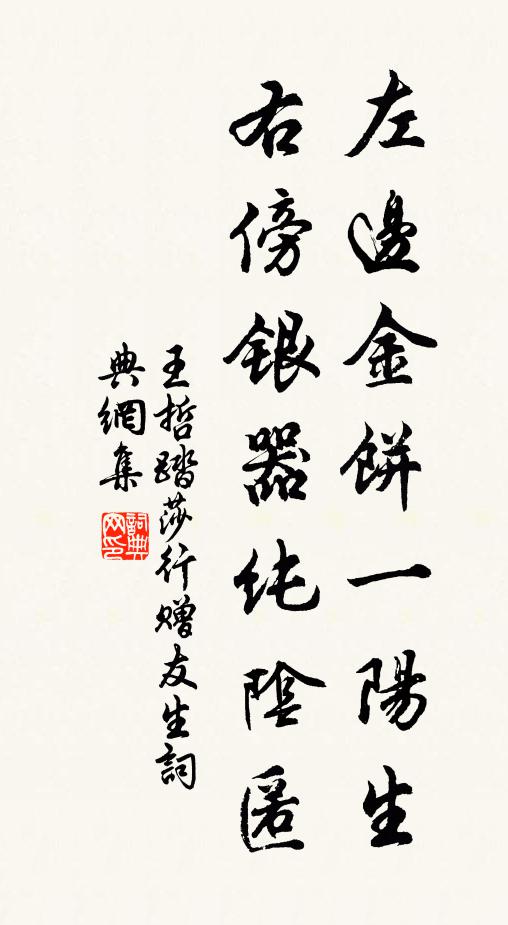 左邊金餅一陽生
右傍銀器純陰匿
王哲踏莎行贈友生詞
典網集
詞典網印